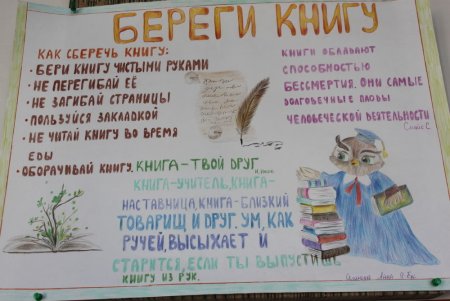 БЕРЕГИ КНИГУ
КАК СБЕРЕЧЬ КНИГУ:
• БЕРИ КНИГУ ЧИСТЫМИ РУКАМИ
• НЕ ПЕРЕГИБАЙ ЕЁ
• НЕ ЗАГИБАЙ СТРАНИЦЫ
• ПОЛЬЗУЙСЯ ЗАКЛАДКОЙ
• НЕ ЧИТАЙ КНИГУ ВО ВРЕМЯ
ЕДЫ
• ОБОРАЧИВАЙ КНИГУ.
КНИГИ ОБЛАДАЮТ
СПОСОБНОСТЬЮ
БЕССМЕРТИЯ. ОНИ САМЫЕ
ДОЛГОВЕЧНЫЕ ПЛОДЫ
ЧЕЛОВЕЧЕСКОЙ ДЕЯТЕЛЬНОСТИ
КНИГА-ТВОЙ ДРУГ
КНИГА-УЧИТЕЛЬ, КНИГА-
НАСТАВНИЦА, КНИГА-БЛИЗКИЙ
ТОВАРИЩ И ДРУГ. УМ, КАК
РУЧЕЙ, ВЫСЫХАЕТ И
СТАРИТСЯ, ЕСЛИ ТЫ ВЫПУСТИШЬ
КНИГУ ИЗ РУК.